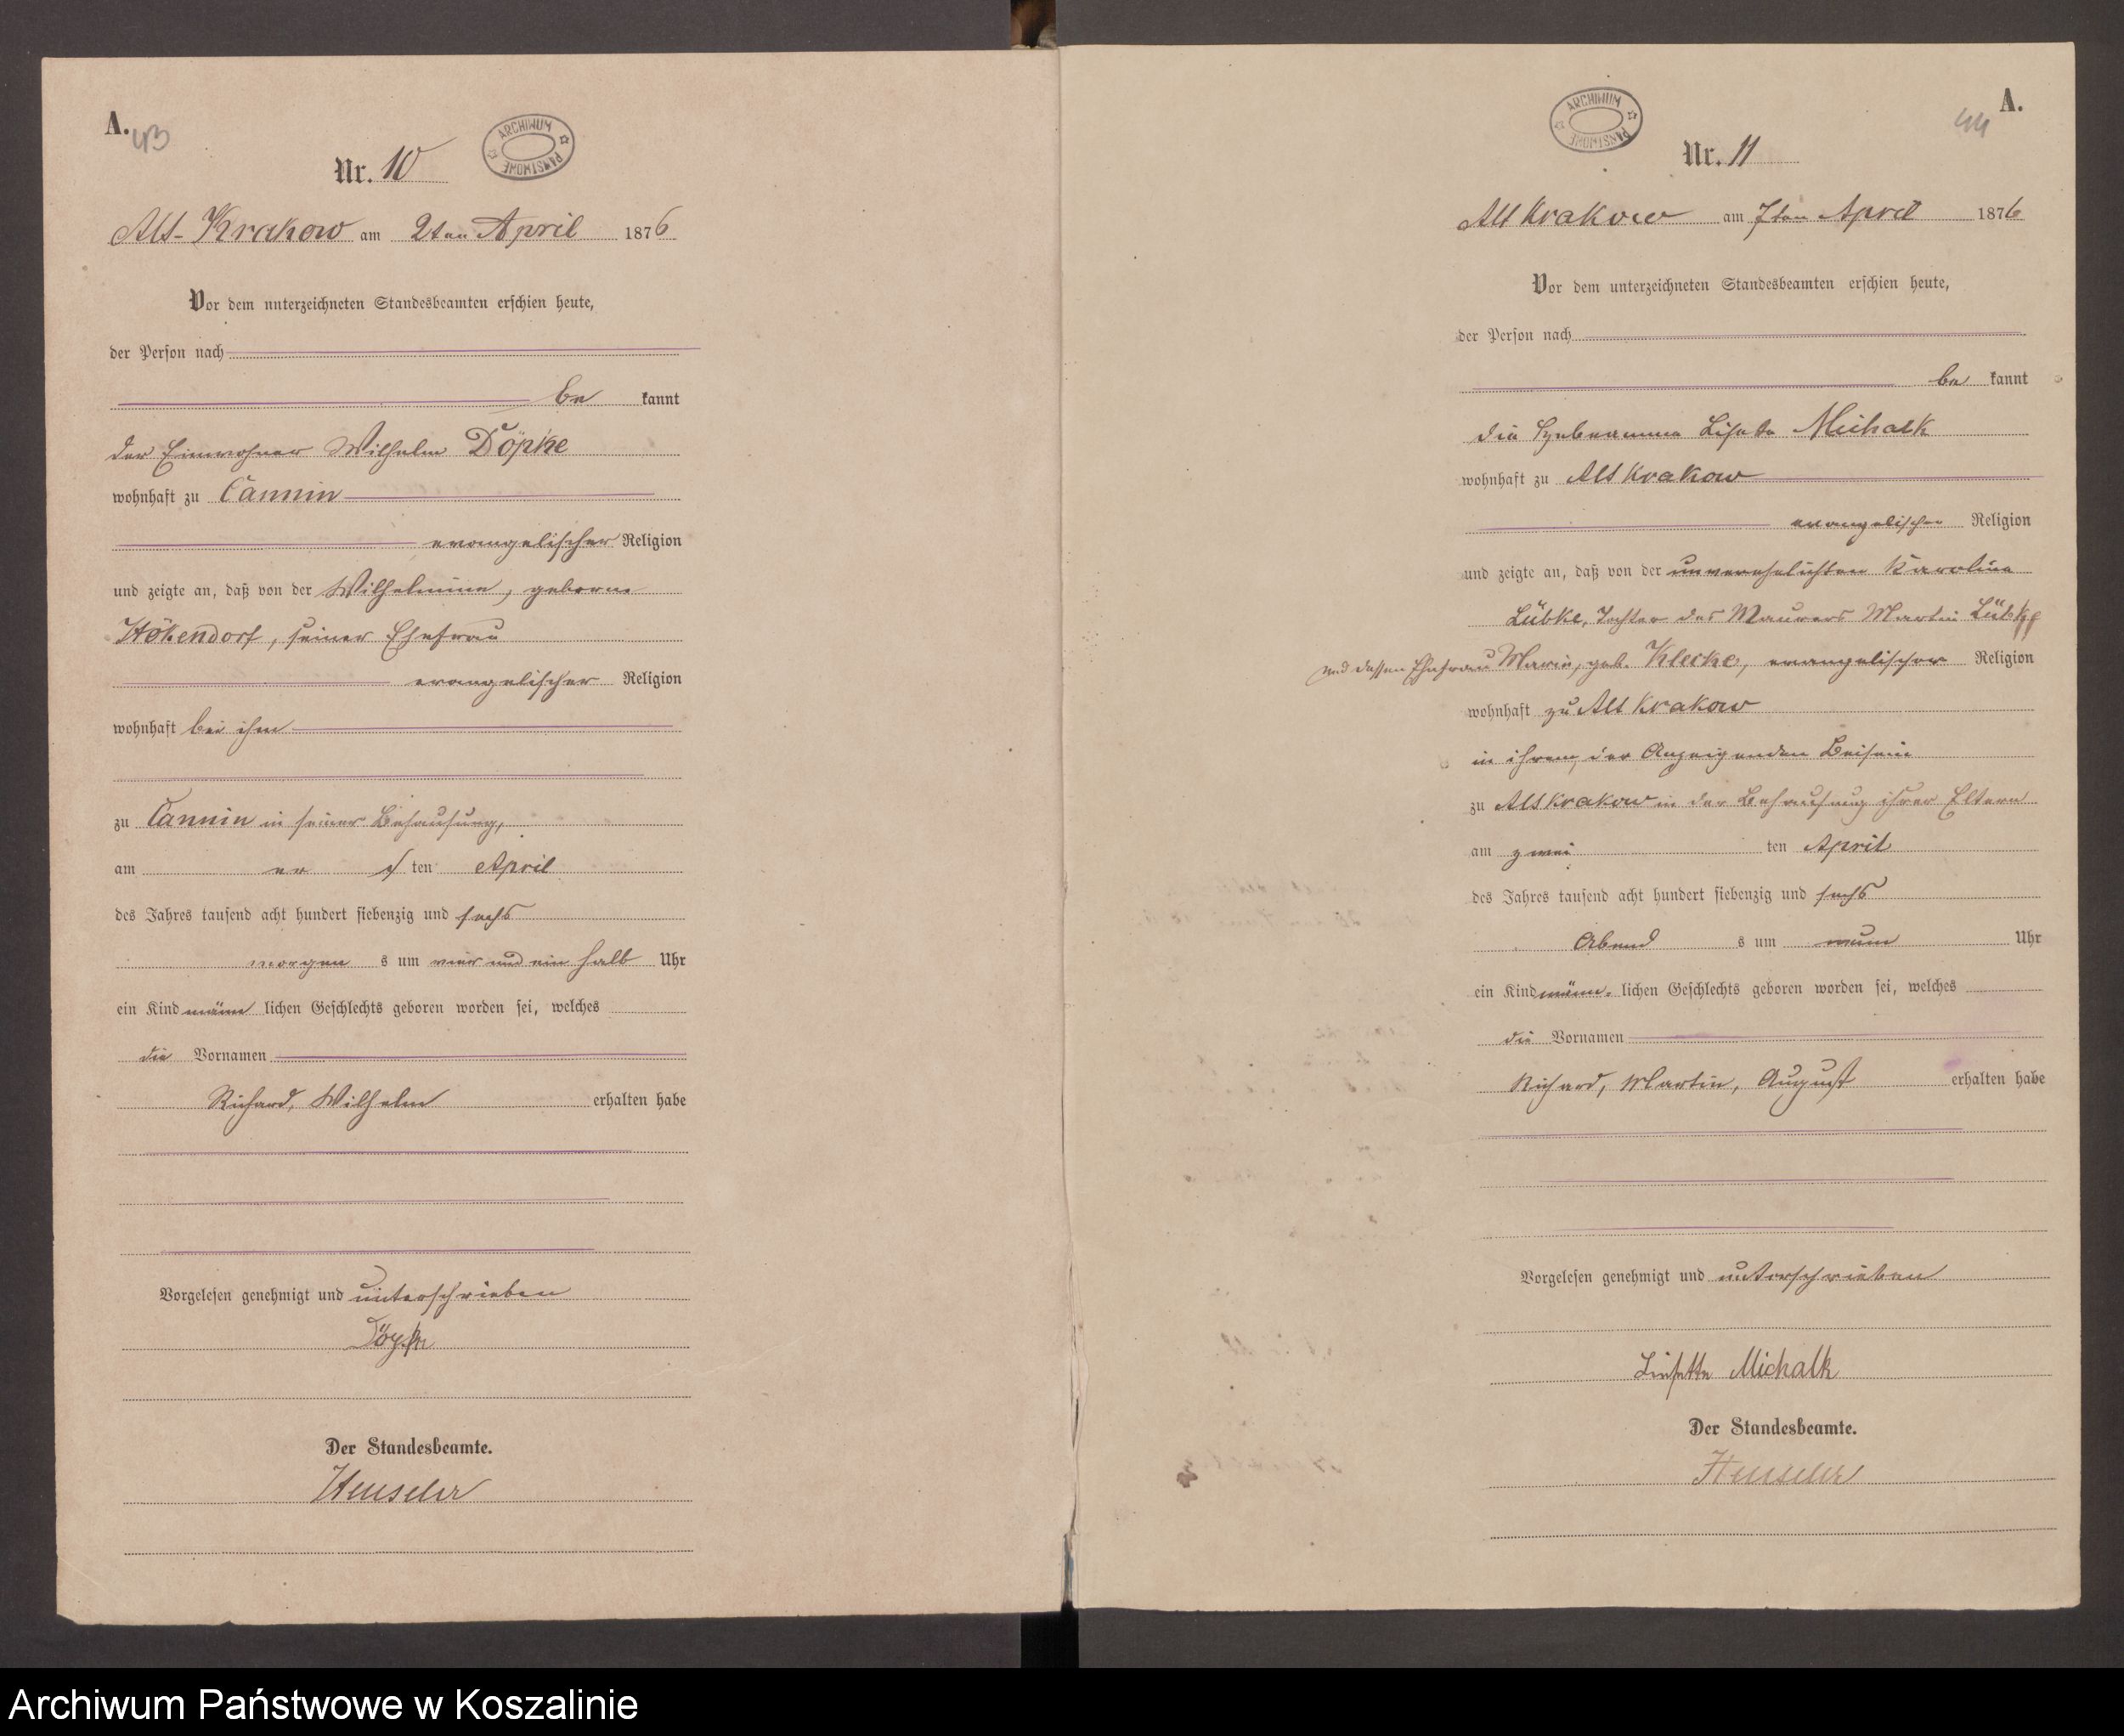 A.
43
ARCHIWUM PAŃSTWOWE
Nr. 10
Alt-Krakow am 2ten April 1876
Vor dem unterzeichneten Standesbeamten erschien heute,
der Person nach
be kannt
der Einwohner Wilhelm Döpke
wohnhaft zu Cannin
evangelischer Religion
und zeigte an, daß von der Wilhelmine, geborne
Hökendorf, seiner Ehefrau
evangelischer Religion
wohnhaft bei ihm
zu Cannin in seiner Behausung,
am ten April
des Jahres tausend acht hundert siebenzig und sechs
morgen s um vier und ein halb Uhr
ein Kind männ lichen Geschlechts geboren worden sei, welches
die Vornamen
Richard, Wilhelm erhalten habe
Vorgelesen genehmigt und unterschrieben
Döpke
Der Standesbeamte.
Henseler
A.
44
ARCHIWUM PAŃSTWOWE
Nr. 11
Alt Krakow am 7ten April 1876
Vor dem unterzeichneten Standesbeamten erschien heute,
der Person nach
be kannt
die Hebeamme Lisete Michalk
wohnhaft zu Alt Krakow
evangelischer Religion
und zeigte an, daß von der unverehelichten Karoline
Lübke, Tochter des Maurers Martin Lübke
und dessen Ehefrau Marie, geb. Klecke, evangelischer Religion
wohnhaft zu Alt Krakow
in ihrem, der Anzeigenden Beisein
zu Alt Krakow in der Behausung ihrer Eltern
am zwei ten April
des Jahres tausend acht hundert siebenzig und sechs
Abend s um neun Uhr
ein Kind männ- lichen Geschlechts geboren worden sei, welches
die Vornamen
Richard, Martin, August erhalten habe
Vorgelesen genehmigt und unterschrieben
Liesette Michalk
Der Standesbeamte.
Henseler
Archiwum Państwowe w Koszalinie